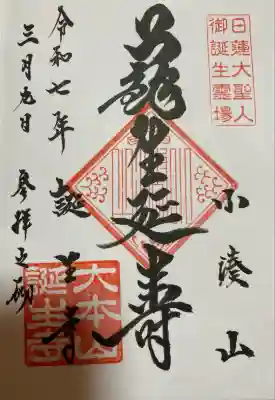 日蓮大聖人
御誕生霊場
小湊山
誕生延寿
誕生寺
大本山
誕生寺
令和七年
三月九日
参拝之砌